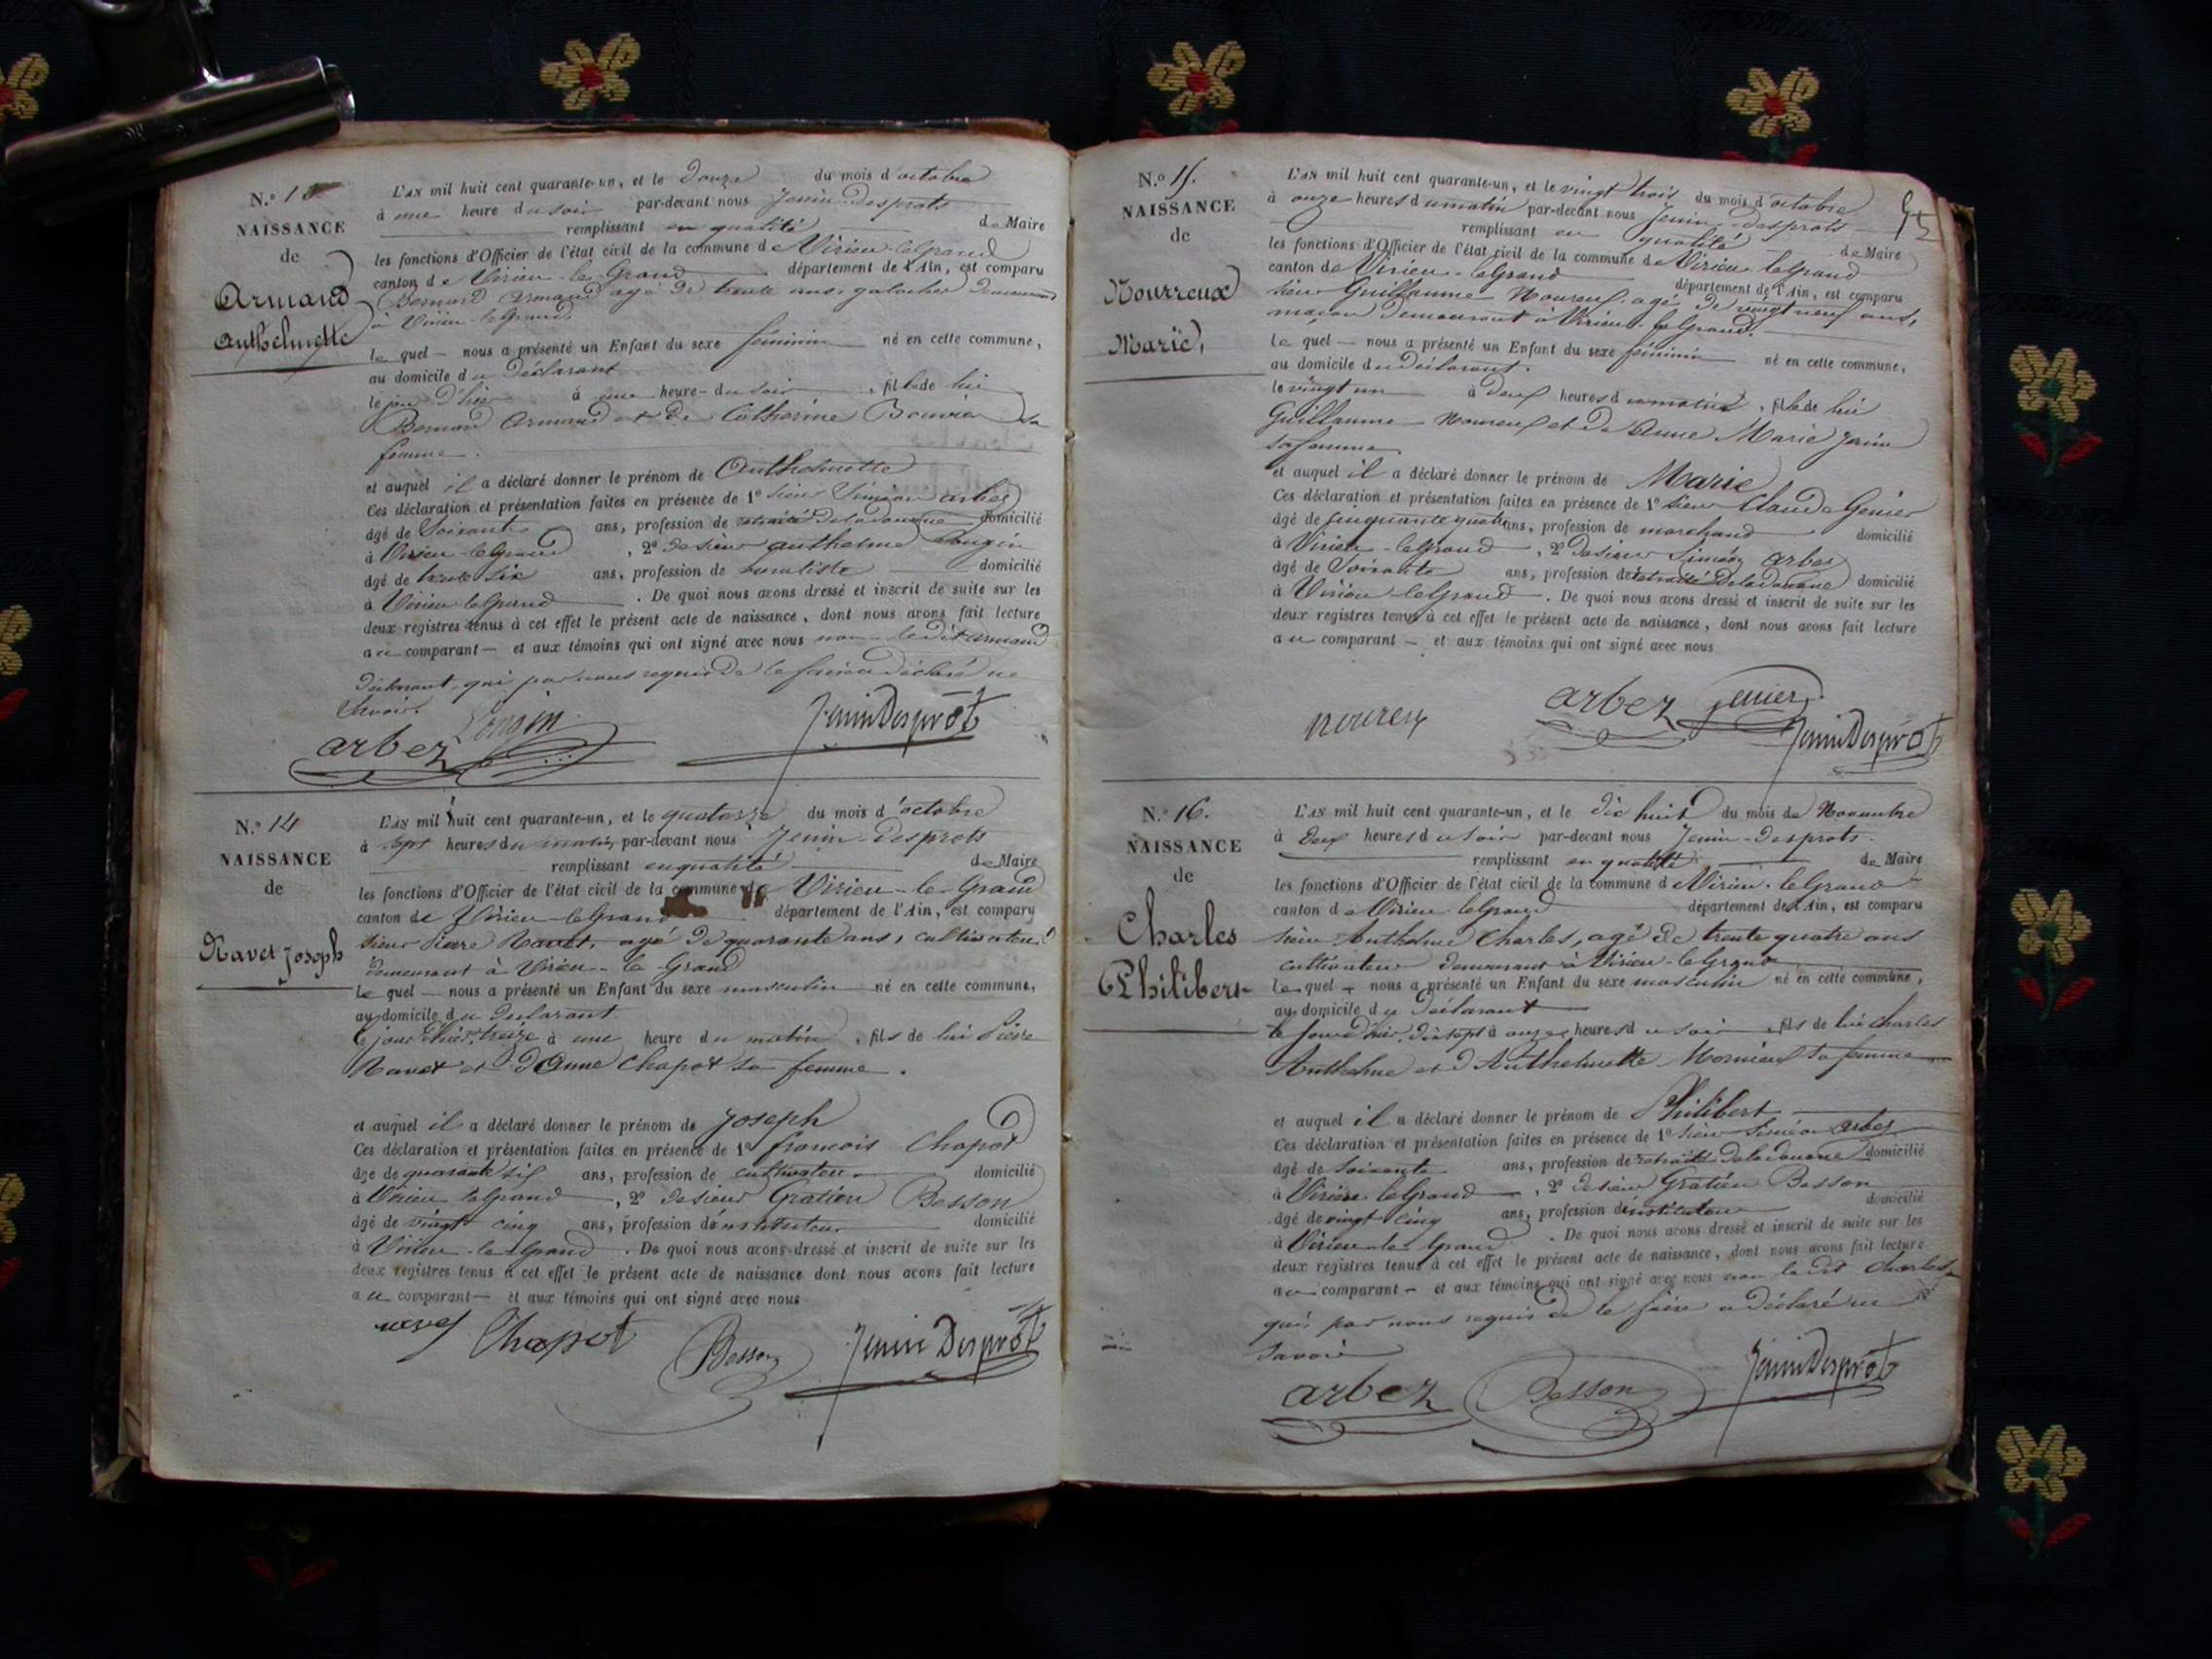 N.o 13
NAISSANCE
de
Armand
Anthelmette
L'AN mil huit cent quarante-un, et le douze du mois d'octobre
à une heure du soir par-devant nous Jenin-Desprots
remplissant en qualité de Maire
les fonctions d'Officier de l'état civil de la commune de Virieu-le-Grand
canton de Virieu-le-Grand département de l'Ain, est comparu
Bernard Armand agé de trente ans, galocher demeurant
à Virieu-le-Grand
le quel — nous a présenté un Enfant du sexe féminin né en cette commune,
au domicile du déclarant
le jour d'hier à une heure du soir, fille de lui
Bernard Armand et de Catherine Bouvier sa
femme.
et auquel il a déclaré donner le prénom de Anthelmette
Ces déclaration et présentation faites en présence de 1° sieur Siméon arbez
âgé de soixante ans, profession de retraité de la douane domicilié
à Virieu-le-Grand, 2° de sieur anthelme Longin
âgé de trente six ans, profession de domicilié
à Virieu-le-Grand. De quoi nous avons dressé et inscrit de suite sur les
deux registres tenus à cet effet le présent acte de naissance, dont nous avons fait lecture
au comparant — et aux témoins qui ont signé avec nous non le dit armand
déclarant, qui par nous requis de le faire a déclaré ne
savoir.
Longin JeninDesprôt
arbez
N.o 14
NAISSANCE
de
Ravet Joseph
L'AN mil huit cent quarante-un, et le quatorze du mois d'octobre
à sept heures du matin, par-devant nous Jenin-Desprots
remplissant en qualité de Maire
les fonctions d'Officier de l'état civil de la commune de Virieu-le-Grand
canton de Virieu-le-Grand département de l'Ain, est comparu
sieur Pierre Ravet, agé de quarante ans, cultivateur
demeurant à Virieu-le-Grand
le quel — nous a présenté un Enfant du sexe masculin né en cette commune,
au domicile du déclarant
le jour d'hier, treize à une heure du matin, fils de lui Pierre
Ravet et d'Anne Chapot sa femme.
et auquel il a déclaré donner le prénom de Joseph
Ces déclaration et présentation faites en présence de 1° francois Chapot
âgé de quarante six ans, profession de cultivateur domicilié
à Virieu le Grand, 2° de sieur Gratien Besson
âgé de vingt cinq ans, profession d'instituteur domicilié
à Virieu-le-Grand. De quoi nous avons dressé et inscrit de suite sur les
deux registres tenus à cet effet le présent acte de naissance dont nous avons fait lecture
au comparant — et aux témoins qui ont signé avec nous
Chapot Besson Jenin Desprôt
N.o 15.
NAISSANCE
de
Nourreux
Marie,
L'AN mil huit cent quarante-un, et le vingt trois du mois d'octobre
à onze heures du matin par-devant nous Jenin-Desprots
remplissant en qualité de Maire
les fonctions d'Officier de l'état civil de la commune de Virieu-le Grand
canton de Virieu-le Grand département de l'Ain, est comparu
sieur Guillaume Noureux, agé de vingt neuf ans,
maçon demeurant à Virieu-le Grand.
le quel — nous a présenté un Enfant du sexe féminin né en cette commune,
au domicile du déclarant.
le vingt un à deux heures du matin, fille de lui
Guillaume Noureux et de Anne Marie Jenin
sa femme
et auquel il a déclaré donner le prénom de Marie
Ces déclaration et présentation faites en présence de 1° sieur Claude Genier
âgé de cinquante quatre ans, profession de marchand domicilié
à Virieu-le Grand, 2° de sieur Siméon Arbez
âgé de soixante ans, profession de retraité de la douane domicilié
à Virieu-le Grand. De quoi nous avons dressé et inscrit de suite sur les
deux registres tenus à cet effet le présent acte de naissance, dont nous avons fait lecture
au comparant — et aux témoins qui ont signé avec nous
noureux arbez genier JeninDesprôt
N.o 16.
NAISSANCE
de
Charles
Philibert
L'AN mil huit cent quarante-un, et le dix huit du mois de Novembre
à deux heures du soir par-devant nous Jenin-Desprots.
remplissant en qualité de Maire
les fonctions d'Officier de l'état civil de la commune de Virieu-le Grand
canton de Virieu-le Grand département de l'Ain, est comparu
sieur Anthelme Charles, agé de trente quatre ans
cultivateur demeurant à Virieu-le Grand
le quel — nous a présenté un Enfant du sexe masculin né en cette commune,
au domicile du déclarant
le jour d'hier, dix sept à onze heures du soir, fils de lui Charles
Anthelme et d'Anthelmette Mornieux sa femme
et auquel il a déclaré donner le prénom de Philibert
Ces déclaration et présentation faites en présence de 1° sieur Siméon arbez
âgé de soixante ans, profession de retraité de la douane domicilié
à Virieu le Grand, 2° de sieur Gratien Besson
âgé de vingt cinq ans, profession d'instituteur domicilié
à Virieu-le-Grand. De quoi nous avons dressé et inscrit de suite sur les
deux registres tenus à cet effet le présent acte de naissance, dont nous avons fait lecture
au comparant — et aux témoins qui ont signé avec nous non le dit Charles
qui par nous requis de le faire a déclaré ne
savoir
arbez Besson JeninDesprôt